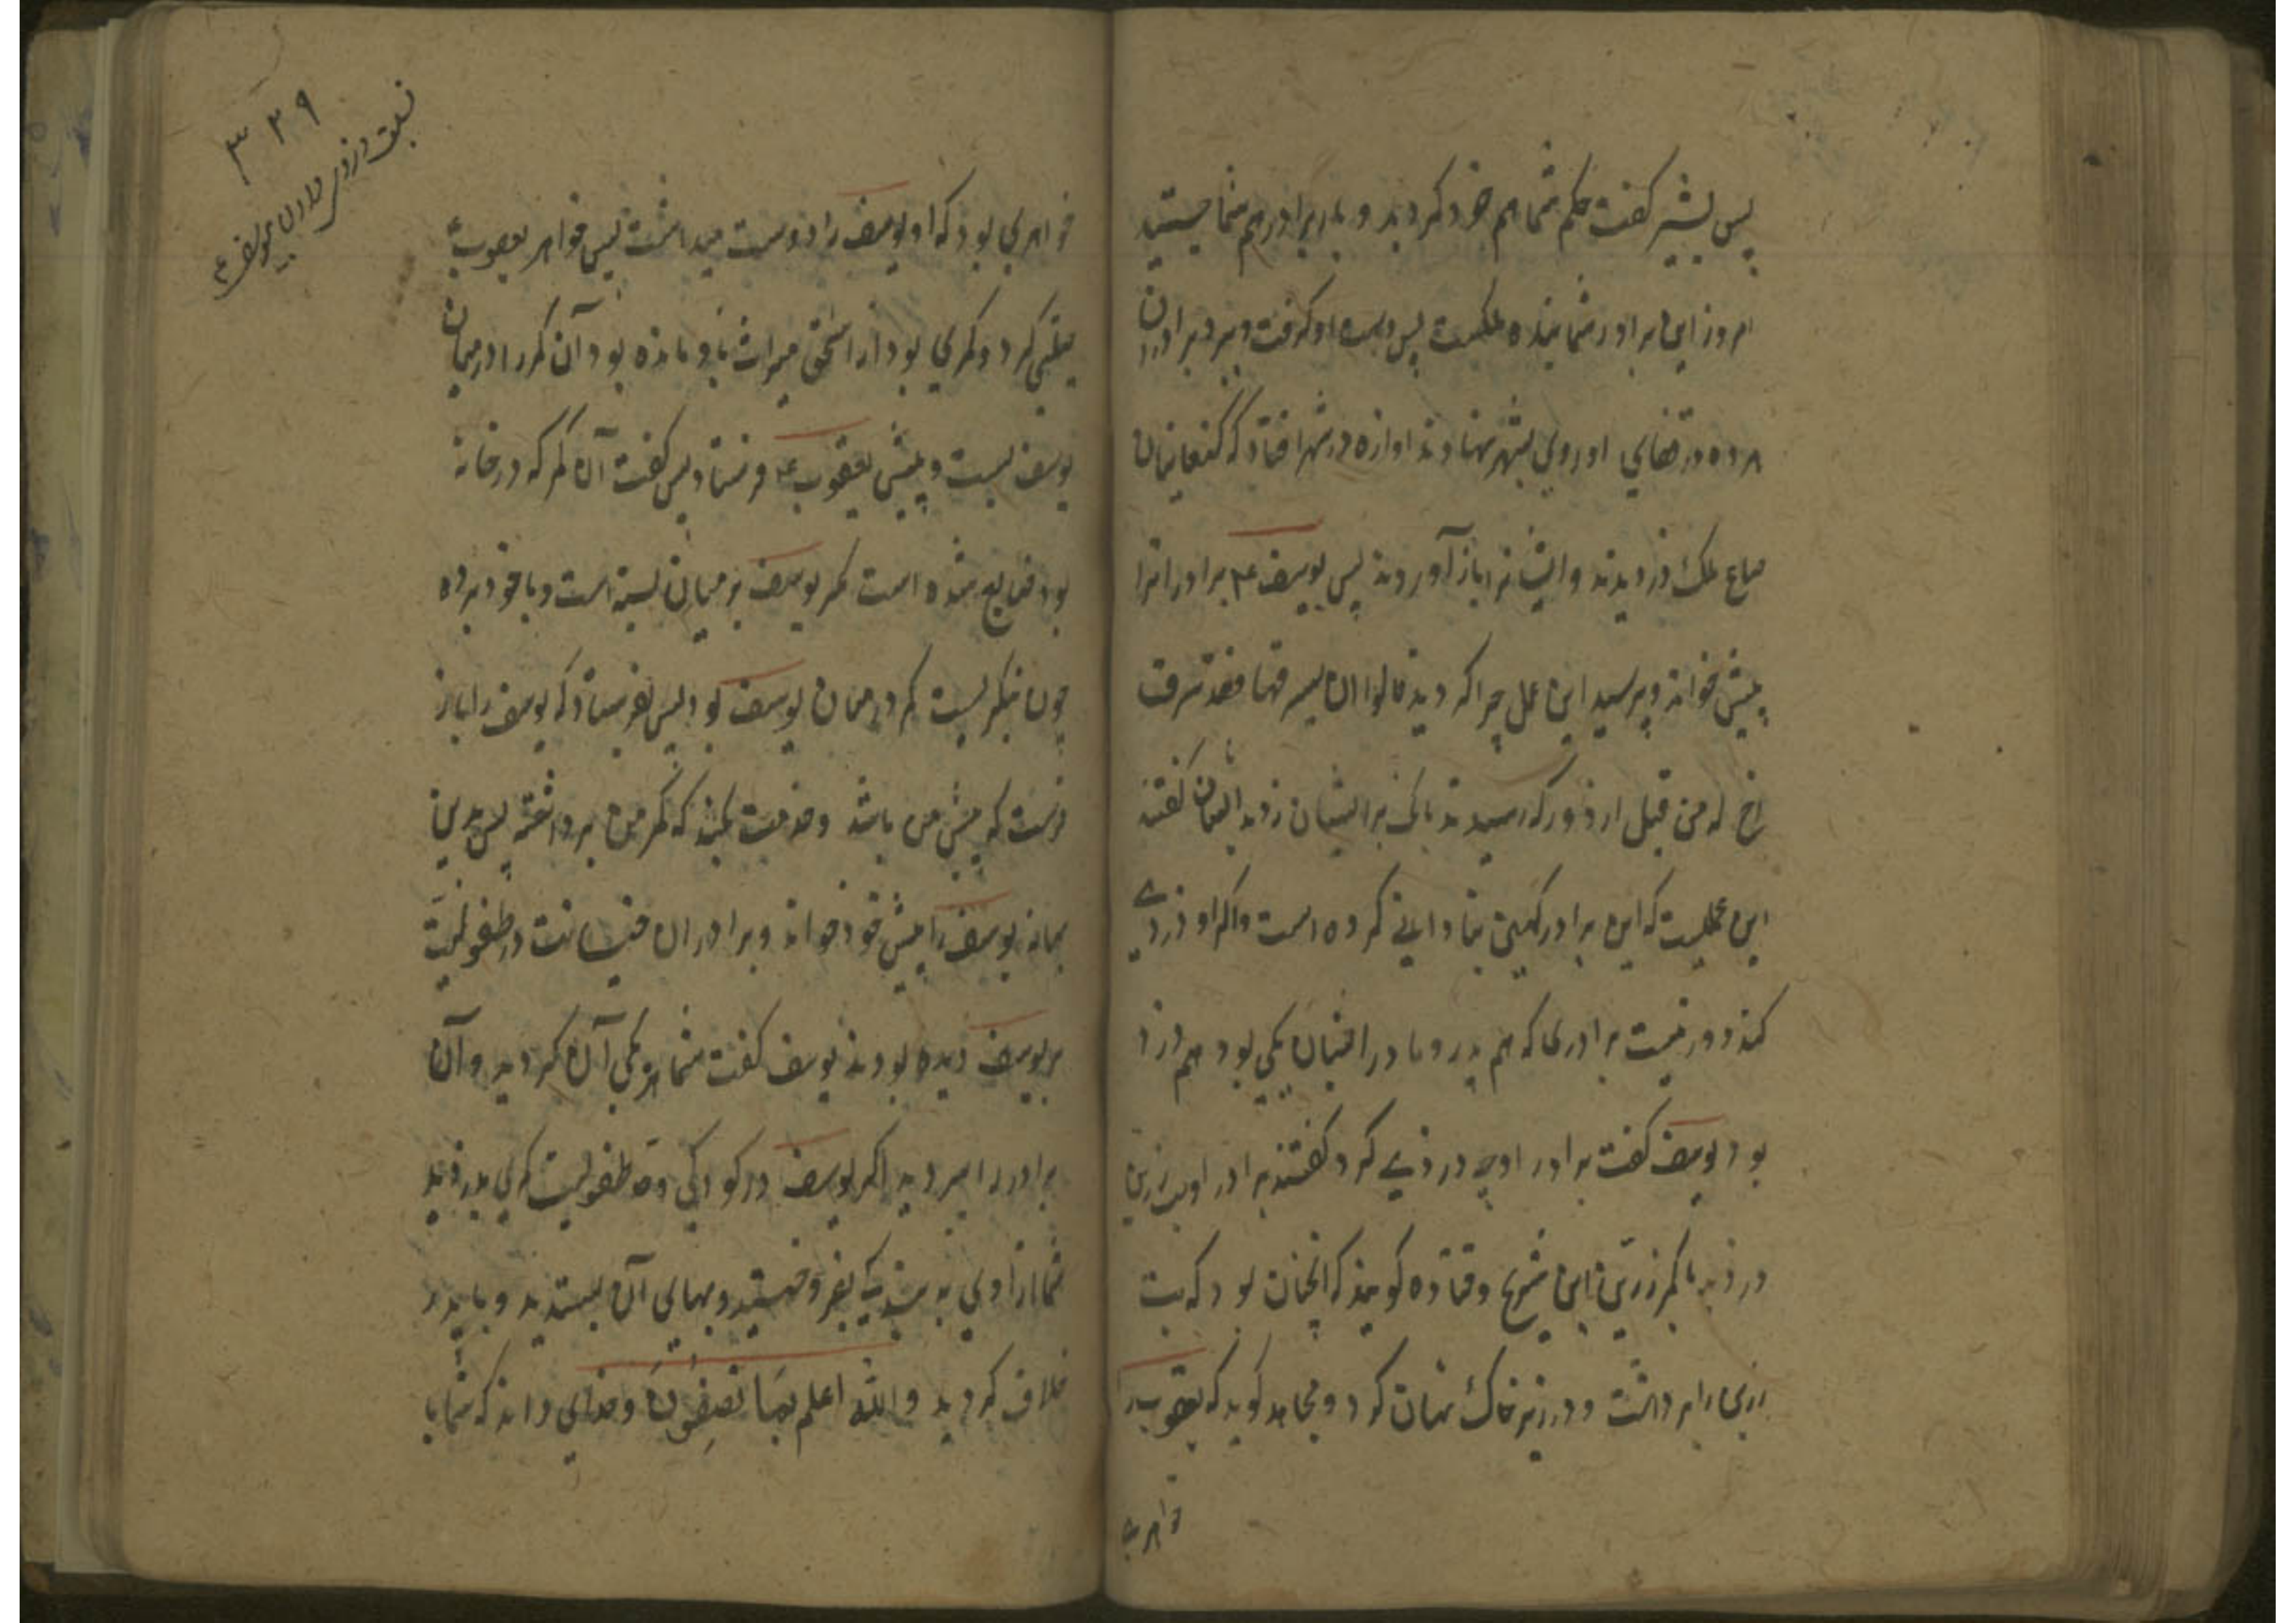 پس بشیر کفت حکم شما هم خود کردید و بار برادر هم شما جستید
امروز این برادر شما بنده ملکست پس دست او کرفت و ببرد برادران
مرده در قفای او روی بشهر نهادند اوازه در شهر افتاد که کنعانیان
صاع ملک دزدیدند و ایشانرا باز آوردند پس یوسف ع م برادرانرا
پیش خواند و پرسید این عمل چرا کردید قالوا ان یسرق فقد سرق
اخ له من قبل از دور که رسیدند بانک برایشان زدند ایشان کفتند
این عملیست که این برادر کهین بنادانی کرده است واکر او دزدی
کند دور نیست برادری که هم پدر و مادر ایشان یکی بود هم دزد
بود یوسف کفت برادر او چه دزدی کرد کفتند برادر او بت زرین
دزدید یا کمر زرین ابن شریح و قتاده کویند که آنچنان بود که بت
زرین را برداشت و در زیر خاک نهان کرد و مجاهد کوید که یعقوب را
خواهری
٣٢٩
نسبت دزدی دادن بیوسف ع
خواهری بود که او یوسف را دوست میداشت پس خواهر یعقوب ع
حیلتی کرد و کمری بود از اسحق میراث باو مانده بود آن کمر را در میان
یوسف ببست و پیش یعقوب ع م فرستاد پس کفت آن کمر که در خانه
بود ضایع شده است مکر یوسف بر میان بسته است و با خود برده
چون بنکریست کمر در میان یوسف بود پس بفرستاد که یوسف را باز
فرست که پیش من باشد و خدمت کند که کمر من برداشته پس بدین
بهانه یوسف را پیش خود خواند و برادران خیانت در طفولیت
بر یوسف دیده بودند یوسف کفت شما هر یکی آن کردید و آن
برادر را ببردید اکر یوسف در کودکی وقت طفولیت کمری بدزدید
شما آزادی بدزدیدید بفروختید و بهای آن بستدید و با پدر
خلاف کردید والله اعلم بما تصفون و خدای داند که شما با